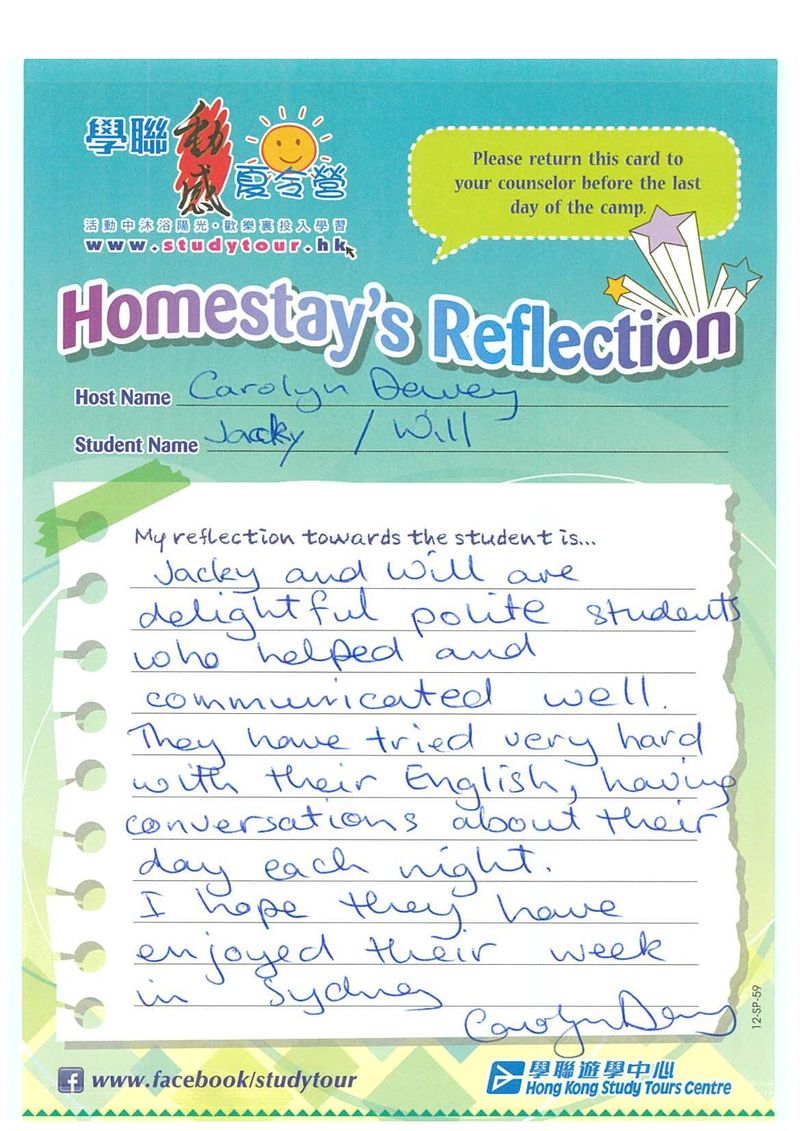 學聯 動感 夏令營
活動中沐浴陽光·歡樂裏投入學習
www.studytour.hk
Please return this card to
your counselor before the last
day of the camp.
Homestay's Reflection
Host Name Carolyn Dewey
Student Name Jacky / Will
My reflection towards the student is...
Jacky and Will are
delightful polite students
who helped and
communicated well.
They have tried very hard
with their English, having
conversations about their
day each night.
I hope they have
enjoyed their week
in Sydney
Carolyn Dewey
12-SP-59
www.facebook/studytour
學聯遊學中心
Hong Kong Study Tours Centre